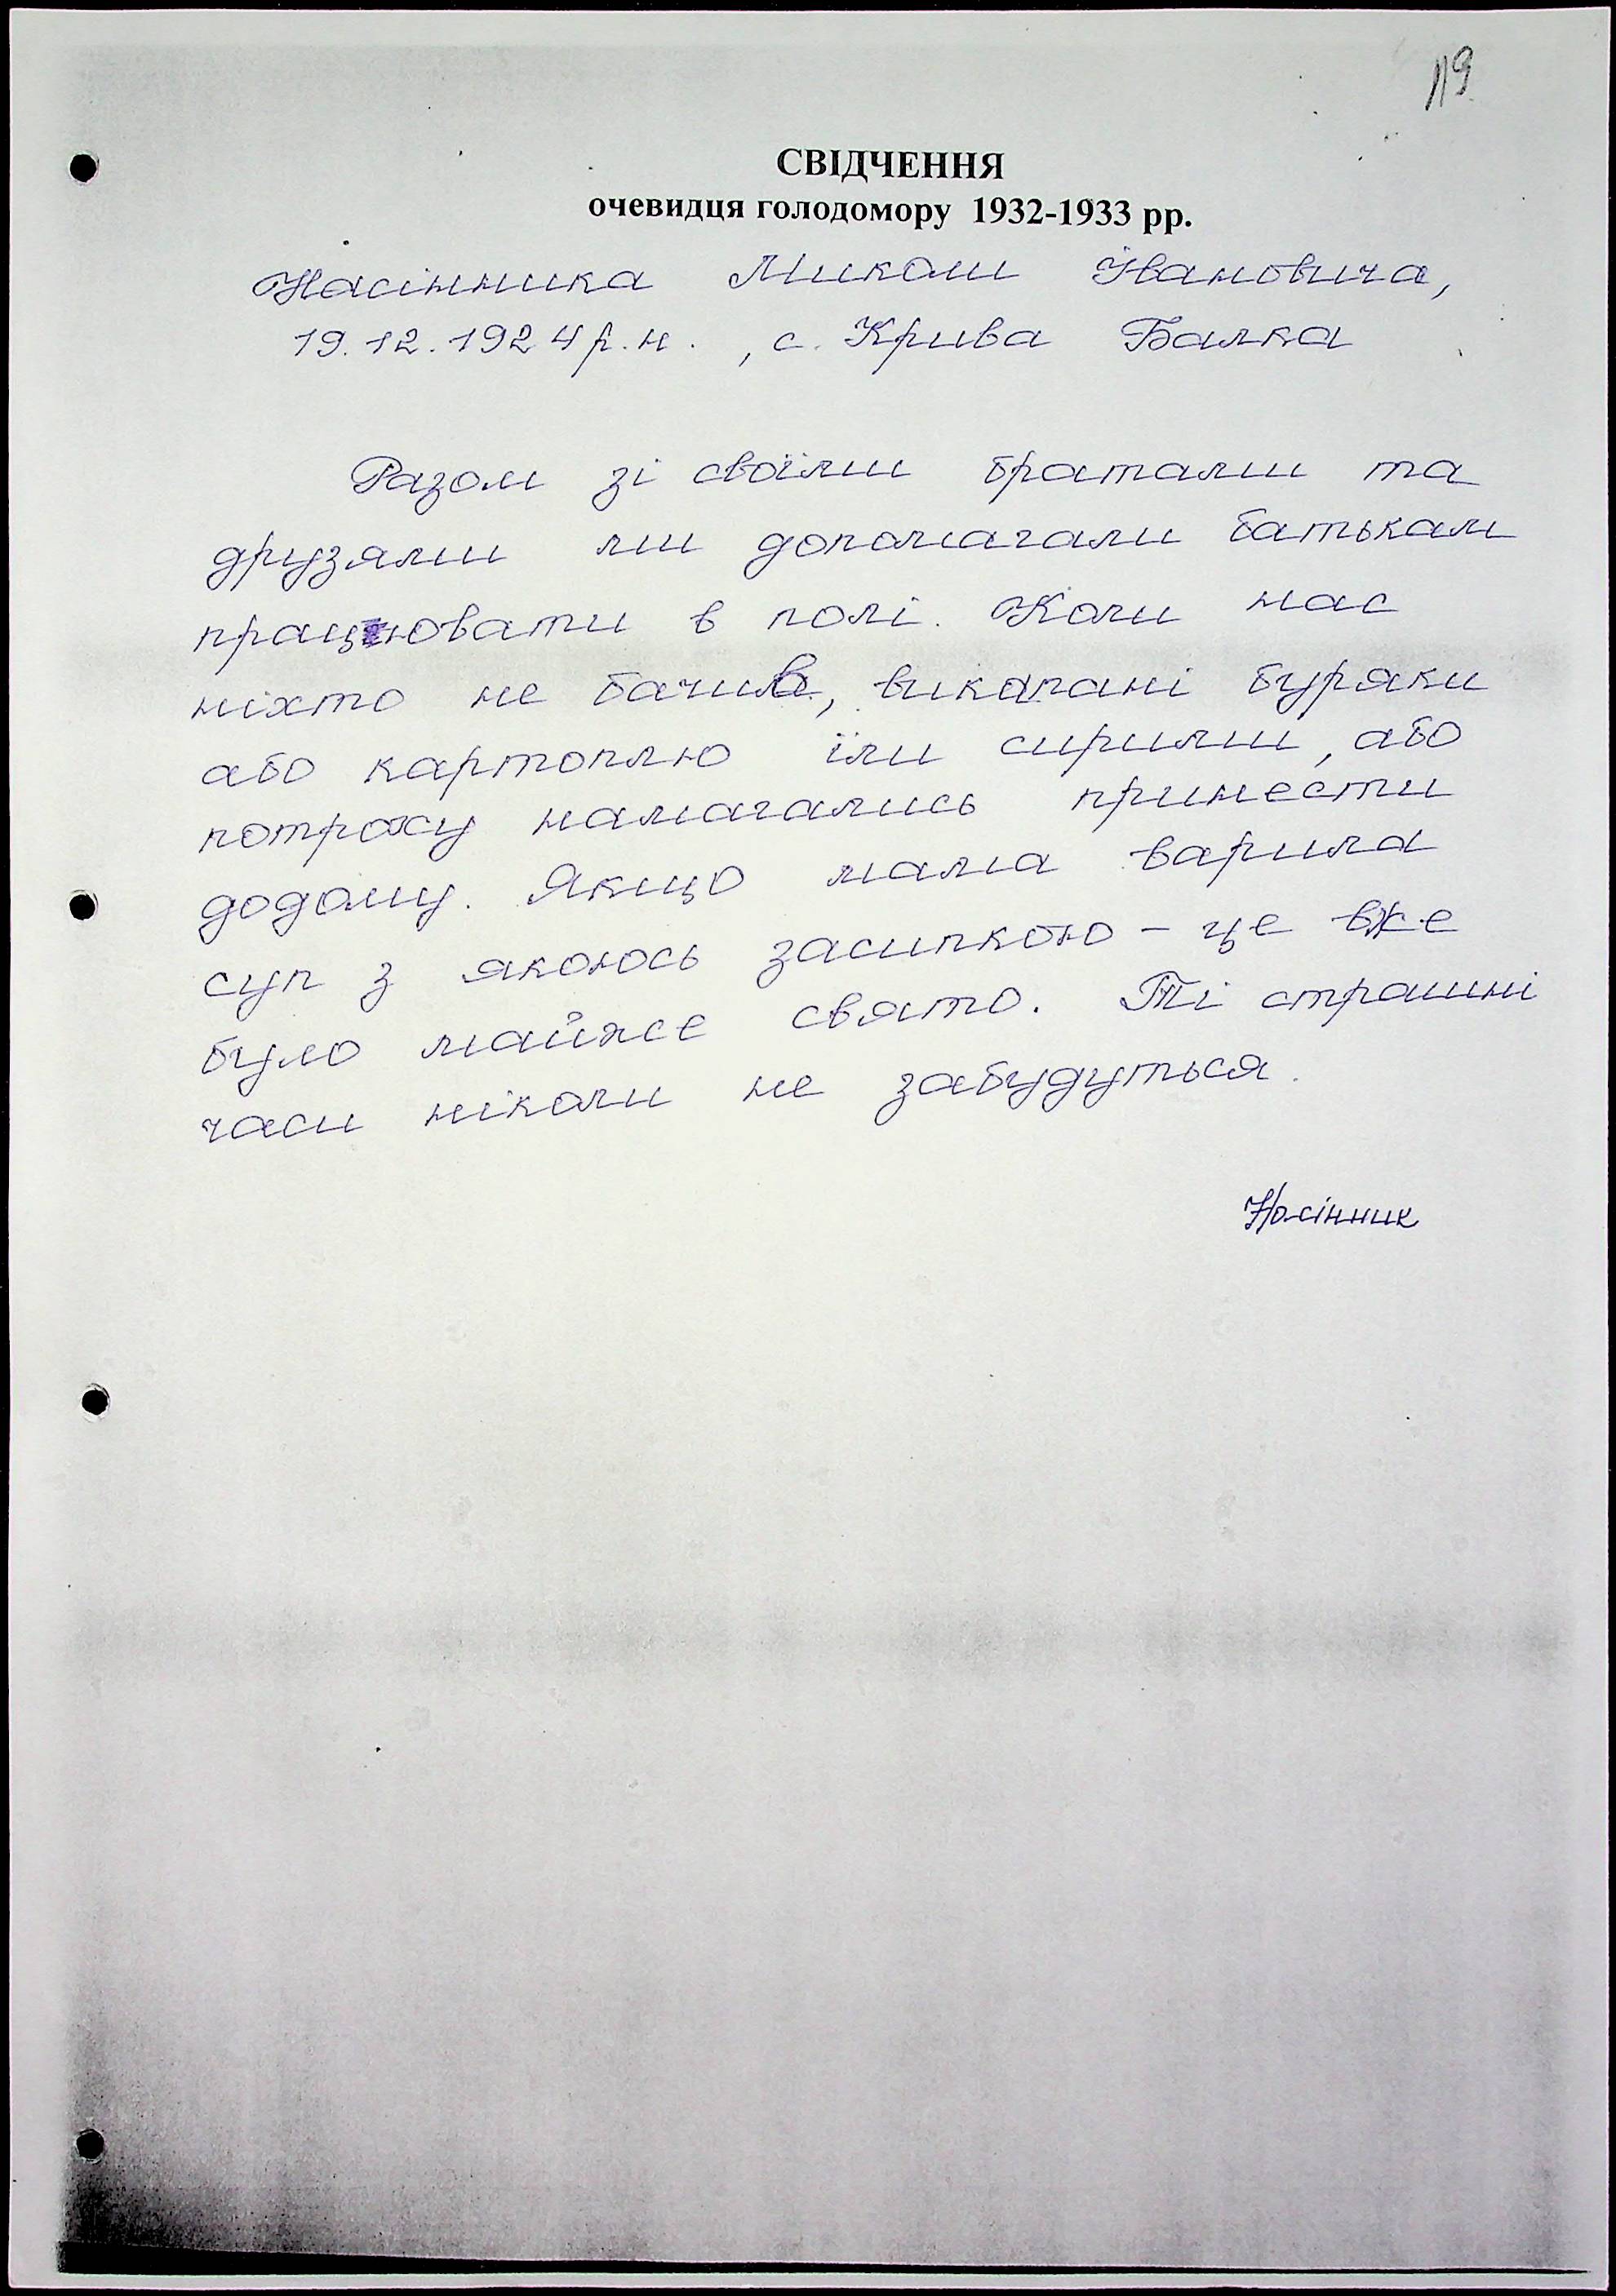 119
СВІДЧЕННЯ
очевидця голодомору 1932-1933 рр.
Насінника Миколи Івановича,
19.12.1924 р.н., с. Крива Балка
Разом зі своїми братами та
друзями ми допомагали батькам
працювати в полі. Коли нас
ніхто не бачив, викапані буряки
або картоплю їли сирими, або
потроху намагались принести
додому. Якщо мама варила
суп з якоюсь засипкою – це вже
було майже свято. Ті страшні
часи ніколи не забудуться.
Насінник